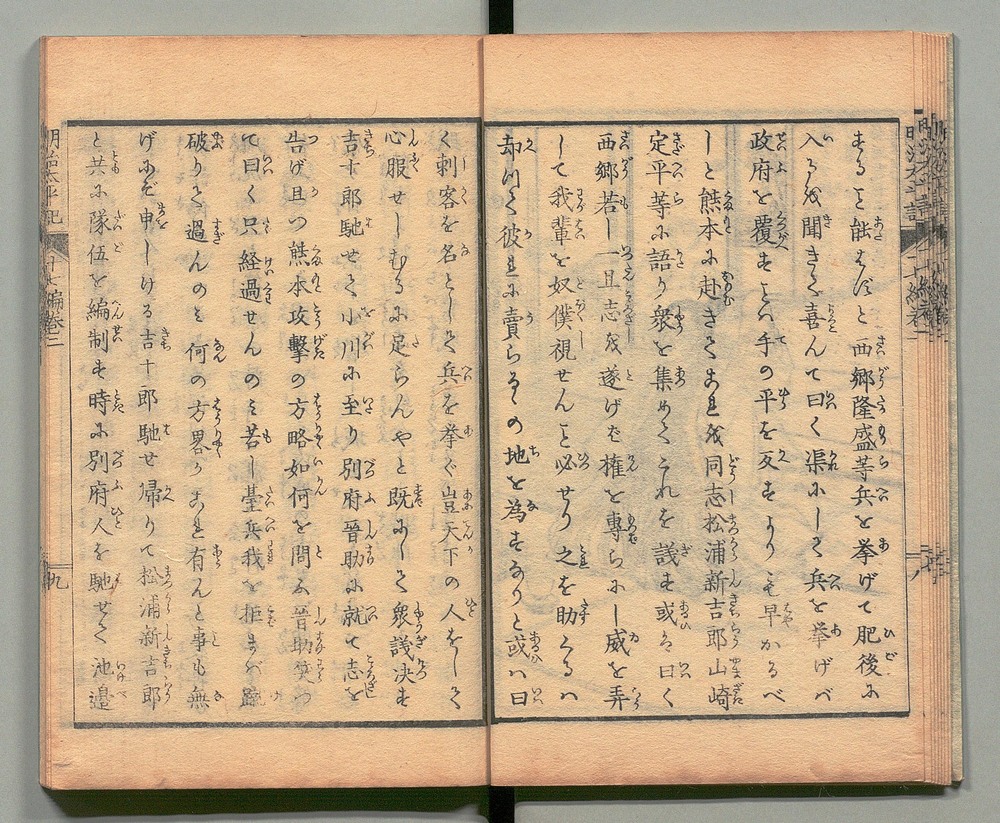 すると能はずと西郷隆盛等兵を挙げて肥後に
入るを聞きて喜んで曰く渠にして兵を挙げバ
政府を覆すことハ手の平を反すよりも早かるべ
しと熊本に赴きてこれを同志松浦新吉郎山崎
定平等に語り衆を集めてこれを議す或ひハ曰く
西郷若し一旦志を遂げバ権を専らにし威を弄
して我輩を奴僕視せんこと必せり之を助くるハ
却つて彼れに売らるるの地を為すなりと或ハ曰
く刺客を名として兵を挙ぐ豈天下の人をして
心服せしむるに足らんやと既にして衆議決す
吉十郎馳せて小川に至り別府晋助に就て志を
告げ且つ熊本攻撃の方略如何を問ふ晋助笑つ
て曰く只経過せんのミ若し臺兵我を拒まバ蹴
破りて過んのミ何の方畧かこれ有んと事も無
げにぞ申しける吉十郎馳せ帰りて松浦新吉郎
と共に隊伍を編制す時に別府人を馳せて池邉
明治太平記
十一編巻二
九